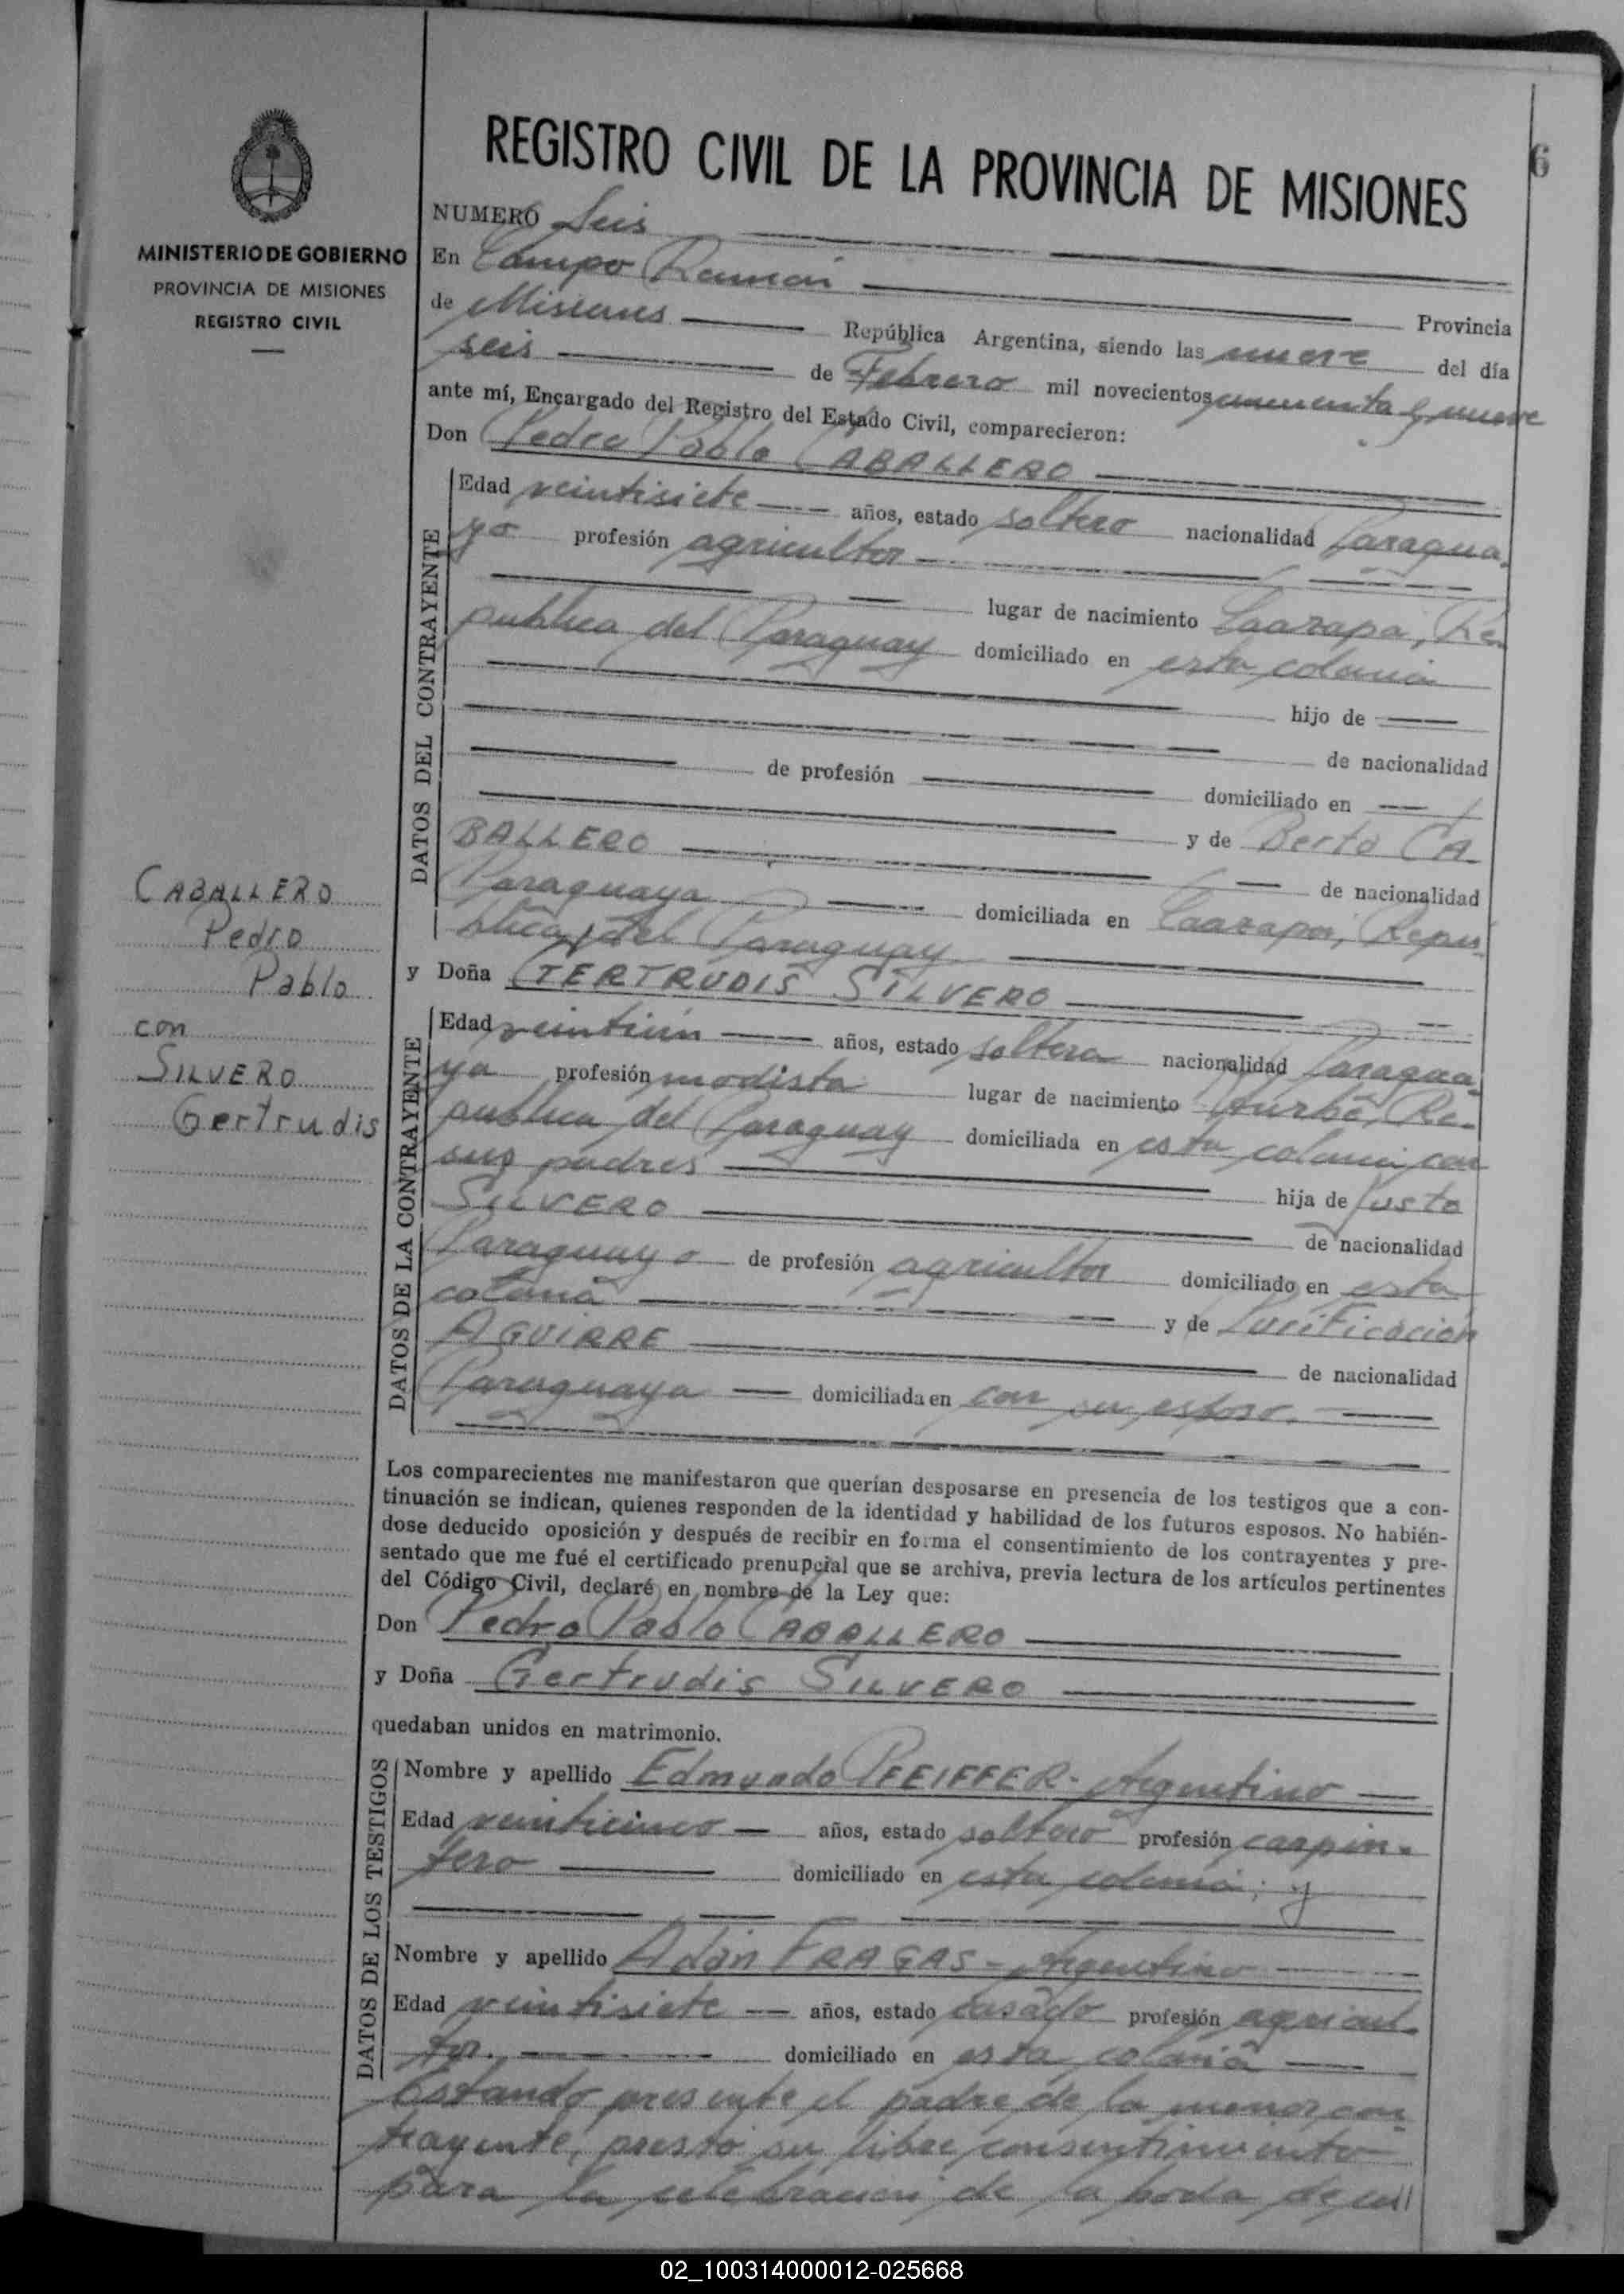 6
REGISTRO CIVIL DE LA PROVINCIA DE MISIONES
MINISTERIO DE GOBIERNO
PROVINCIA DE MISIONES
REGISTRO CIVIL
NUMERO Seis
En Campo Ramón
Provincia
de Misiones República Argentina, siendo las nueve del día
seis de Febrero mil novecientos cincuenta y nueve
ante mí, Encargado del Registro del Estado Civil, comparecieron:
Don Pedro Pablo CABALLERO
DATOS DEL CONTRAYENTE
Edad veintisiete años, estado soltero nacionalidad Paragua-
yo profesión agricultor
lugar de nacimiento Caazapá, Re-
publica del Paraguay domiciliado en esta colonia
hijo de
de nacionalidad
de profesión
domiciliado en
y de Berta CA-
BALLERO
de nacionalidad
Paraguaya domiciliada en Caazapá, Repú-
blica del Paraguay
y Doña GERTRUDIS SILVERO
CABALLERO
Pedro
Pablo
con
SILVERO
Gertrudis
DATOS DE LA CONTRAYENTE
Edad veintiún años, estado soltera nacionalidad Paragua-
ya profesión modista lugar de nacimiento Re-
publica del Paraguay domiciliada en esta colonia con
sus padres
hija de Justo
SILVERO
de nacionalidad
Paraguayo de profesión agricultor domiciliado en esta
colonia
y de Purificación
AGUIRRE
de nacionalidad
Paraguaya domiciliada en con su esposo.
Los comparecientes me manifestaron que querían desposarse en presencia de los testigos que a con-
tinuación se indican, quienes responden de la identidad y habilidad de los futuros esposos. No habién-
dose deducido oposición y después de recibir en forma el consentimiento de los contrayentes y pre-
sentado que me fué el certificado prenupcial que se archiva, previa lectura de los artículos pertinentes
del Código Civil, declaré en nombre de la Ley que:
Don Pedro Pablo CABALLERO
y Doña Gertrudis SILVERO
quedaban unidos en matrimonio.
DATOS DE LOS TESTIGOS
Nombre y apellido Edmundo PFEIFFER - Argentino
Edad veinticinco años, estado soltero profesión carpin-
tero domiciliado en esta colonia; y
Nombre y apellido Adán FRAGAS - Argentino
Edad veintisiete años, estado casado profesión agricul-
tor. domiciliado en esta colonia
Estando presente el padre de la menor con-
trayente, prestó su libre consentimiento
para la celebración de la boda de
02_100314000012-025668